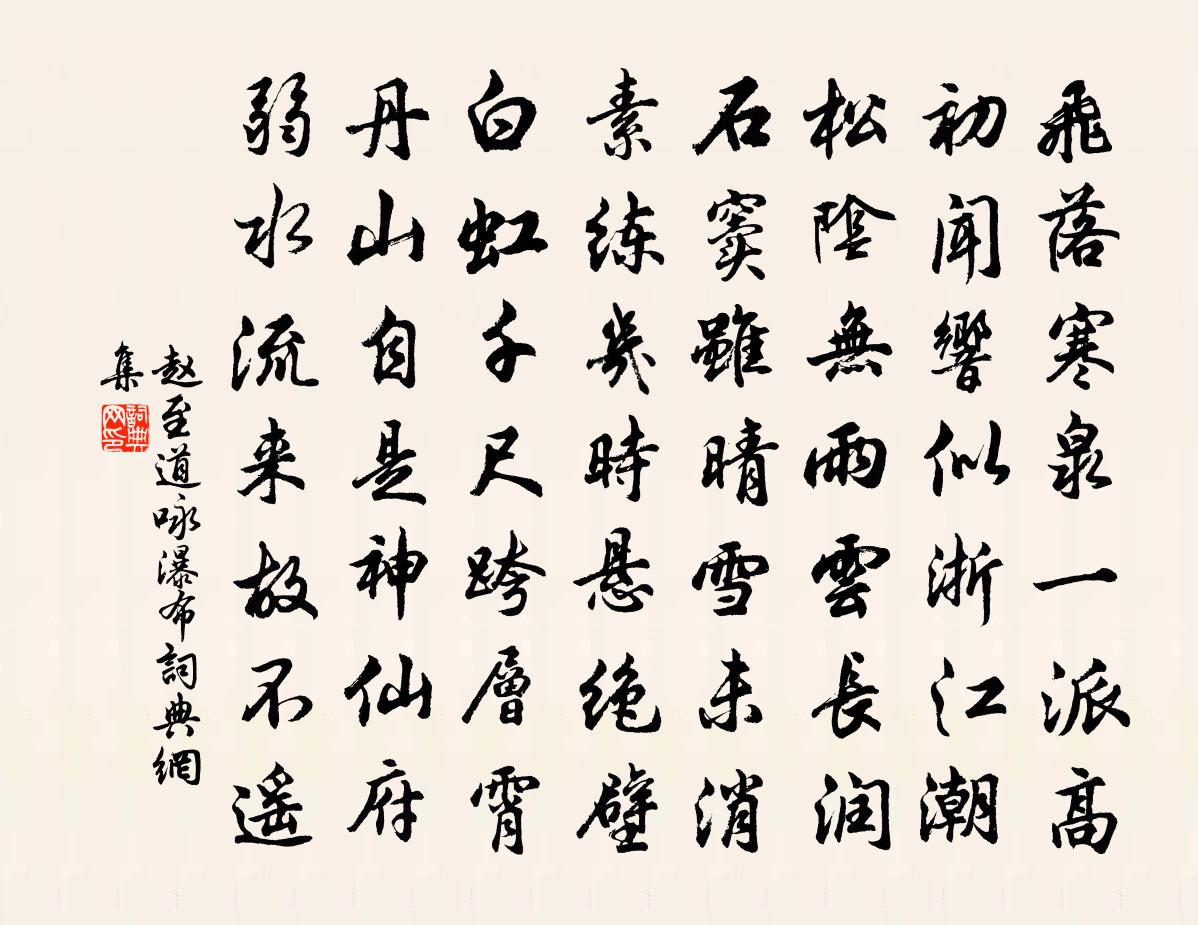 飛落寒泉一派高
初聞響似浙江潮
松陰無雨雲長润
石窦雖晴雪未消
素练幾時悬绝壁
白虹千尺跨層霄
丹山自是神仙府
弱水流来故不遥
赵至道咏瀑布詞典網
集
詞典
网印